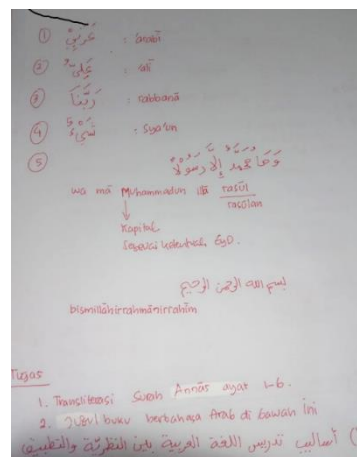 ① عَرَبِيٌّ : 'arabī
② عَلِيٌّ : 'alī
③ رَبَّنَا : rabbanā
④ شَيْءٌ : Sya'un
⑤ وَمَا محمد إِلَّا رَسُوْلٌ
wa mā Muhammadun illā rasūl
rasūlun
↓
Kapital
Sesuai ketentuan EyD.
بسم الله الرحمن الرحيم
bismillāhirrahmānirrahīm
Tugas
1. Transliterasi Surah Annās ayat 1-6.
2. Judul buku berbahasa Arab di bawah ini
أساليب تدريس اللغة العربية بين النظرية والتطبيق